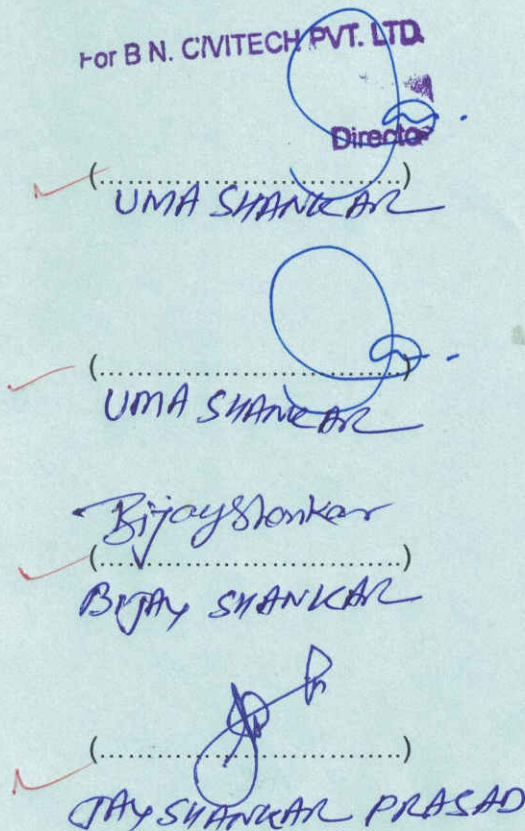 For B N. CIVITECH PVT. LTD.
Director
(................................)
UMA SHANKAR
(................................)
UMA SHANKAR
Bijay Shankar
(................................)
BIJAY SHANKAR
(................................)
JAY SHANKAR PRASAD